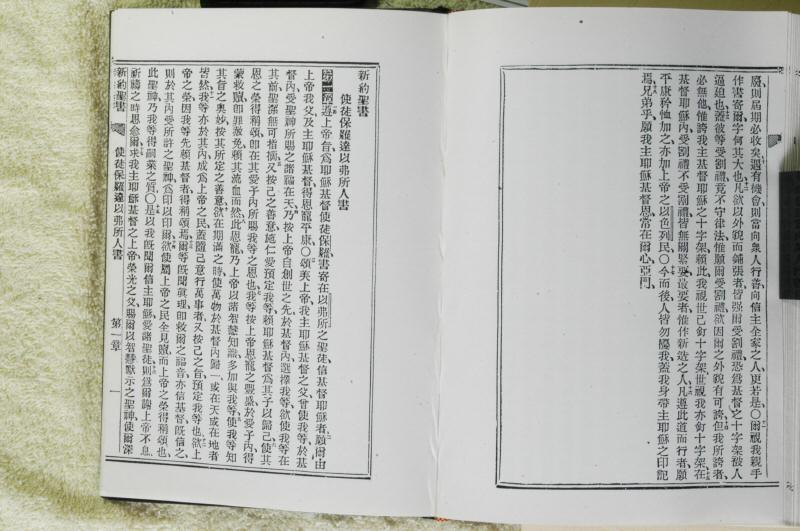 屬則屆期必收矣遇有機會則當向衆人行善向信主全家之人更若是〇爾視我親手
作書寄爾字何其大也凡欲以外貌而鋪張者皆强爾受割禮恐爲基督之十字架被人
逼迫也蓋彼等受割禮竟不守律法惟願爾受割禮欲因爾之外貌有可誇但我所誇者
必無他惟誇我主耶穌基督之十字架賴此我視世已釘十字架世視我亦釘十字架在
基督耶穌內受割禮不受割禮皆無關緊要最要者惟作新造之人凡遵此道而行者願
平康矜恤加之亦加上帝之以色列民〇今而後人皆勿擾我蓋我身帶主耶穌之印記
焉兄弟乎願我主耶穌基督恩常在爾心亞門
新約聖書
使徒保羅達以弗所人書
第一章遵上帝旨爲耶穌基督使徒保羅書寄在以弗所之聖徒信基督耶穌者願爾由
上帝我父及主耶穌基督得恩寵平康〇頌美上帝我主耶穌基督之父曾使我等於基
督內受聖神所賜之諸福在天乃按上帝自創世之先於基督內選擇我等欲使我等在
其前聖潔無可指摘又按己之善意施仁愛預定我等賴耶穌基督爲其子以歸己使其
恩之榮得稱頌卽在其愛子內所賜我等之恩也我等按上帝恩寵之豐盛於愛子內得
蒙救贖卽罪蒙免賴其流血而然此恩寵乃上帝以諸智慧知識多加與我等使我等知
其旨之奧妙按其所定之善意欲在期滿之時使萬物於基督內歸一或在天或在地者
皆然我等亦於其內成爲上帝之民蓋隨己意行萬事者又按己之旨預定我等也欲上
帝之榮因我等先賴基督者得稱頌焉爾等旣聞眞理卽救爾之福音亦信基督旣信之
則於其內受所許之聖神爲印以印爾欲使屬上帝之民全見贖而上帝之榮得稱頌也
此聖神乃我等得嗣業之質〇是以我旣聞爾信主耶穌愛諸聖徒則爲爾謝上帝不息
祈禱之時思念爾求我主耶穌基督之上帝榮光之父賜爾以智慧默示之聖神使爾深
新約聖書 使徒保羅達以弗所人書 第一章 一